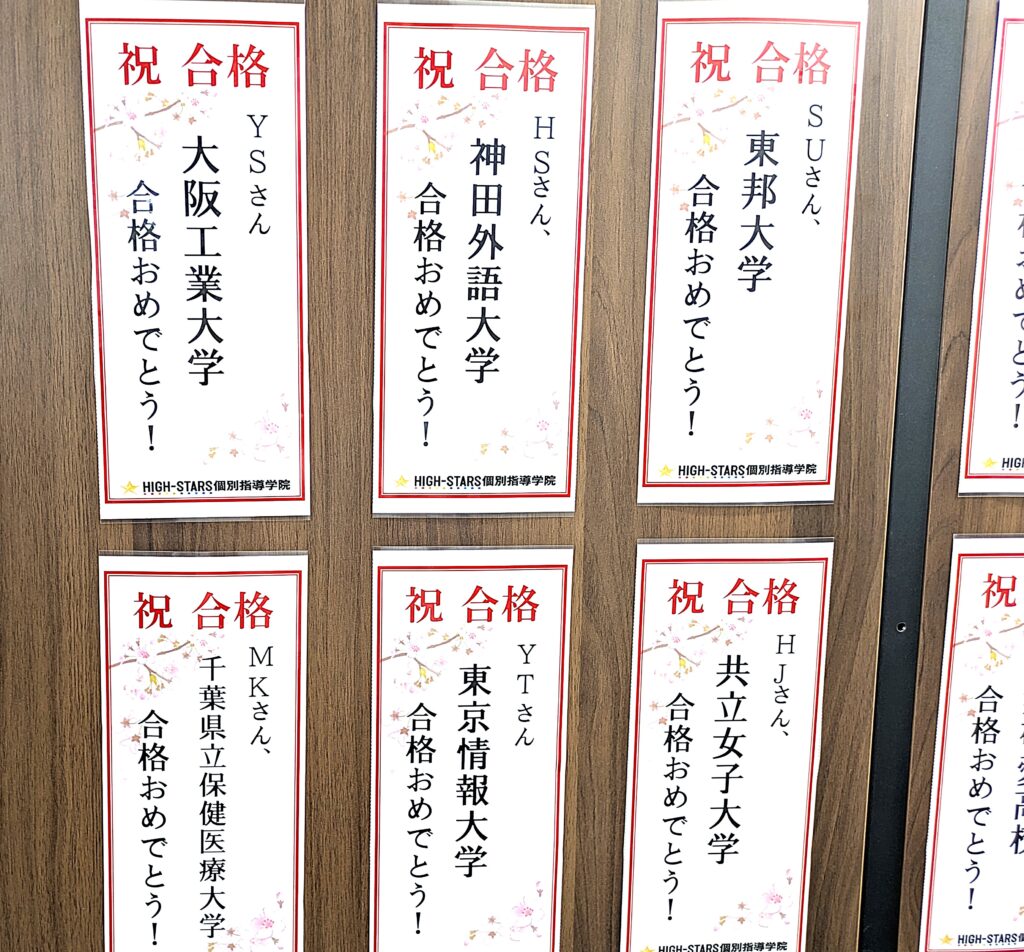 祝 合格
YSさん
大阪工業大学
合格おめでとう!
HIGH-STARS個別指導学院
祝 合格
HSさん、
神田外語大学
合格おめでとう!
HIGH-STARS個別指導学院
祝 合格
SUさん、
東邦大学
合格おめでとう!
HIGH-STARS個別指導学院
格おめでとう!
HIGH
祝 合格
MKさん、
千葉県立保健医療大学
合格おめでとう!
祝 合格
YTさん
東京情報大学
合格おめでとう!
祝 合格
HJさん、
共立女子大学
合格おめでとう!
HIGH-STARS個別指導学院
祝
高校
合格おめでとう!
HIGH-STARS